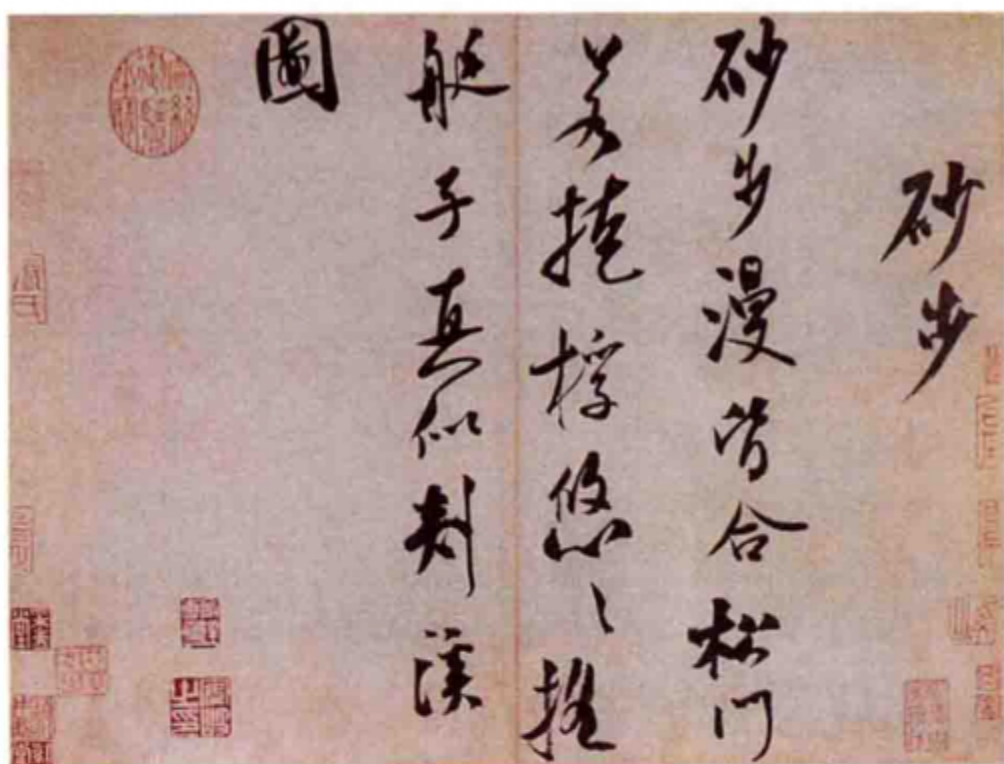 砂步
砂步漫皆合松門
若掩桴悠々搖
艇子真似剡溪
圖